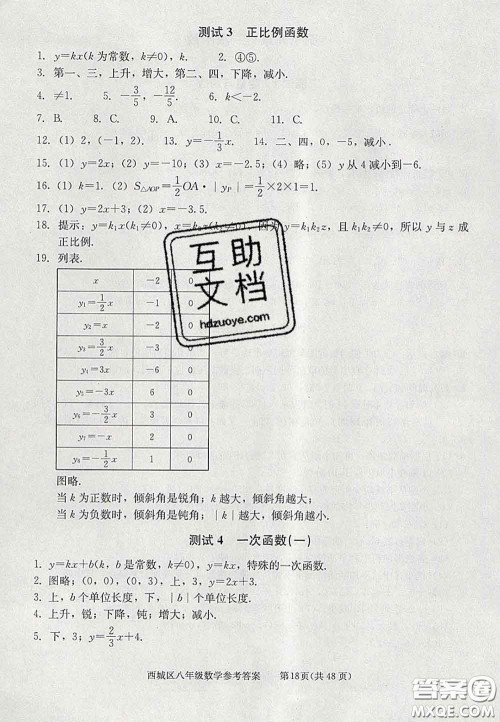 测试 3 正比例函数
1. y=kx(k 为常数, k≠0), k. 2. ④⑤.
3. 第一、三, 上升, 增大, 第二、四, 下降, 减小.
4. ≠1. 5. -3/5, -12/5. 6. k<-2.
7. B. 8. C. 9. C. 10. C. 11. C.
12. (1) 2, (-1, 2). 13. y=-1/3x. 14. 二、四, 0, -5, 减小.
15. (1) y=2x; (2) y=-10; (3) x=-2.5; (4) 略; (5) y 从 4 减小到-6.
16. (1) k=1. (2) S△AOP=1/2OA·|yP|=1/2×2×1=1.
17. (1) y=2x+3; (2) x=-3.5.
18. 提示: y=k₁x(k₁≠0), 因为 y=k₁k₂z, 且 k₁k₂≠0, 所以 y 与 z 成
正比例.
19. 列表.
x -2 0
y₁=1/2x -1 0
y₂=x -2 0
y₃=3/2x -3 0
y₄=3x -6 0
y₅=-3x 6 0
y₆=-3/2x 3 0
y₇=-x 2 0
y₈=-1/2x 1 0
图略.
当 k 为正数时, 倾斜角是锐角; k 越大, 倾斜角越大;
当 k 为负数时, 倾斜角是钝角; |k|越大, 倾斜角越小.
互助
文档
hdzuoye.com
测试 4 一次函数(一)
1. y=kx+b(k, b 是常数, k≠0), y=kx, 特殊的一次函数.
2. 图略; (0, 0), (0, 3), 上, 3, y=2x+3.
3. 上, b 个单位长度, 下, |b|个单位长度.
4. 上升, 锐; 下降, 钝; 增大; 减小.
5. 下, 3; y=2/3x+4.
西城区八年级数学参考答案 第18页(共 48 页)